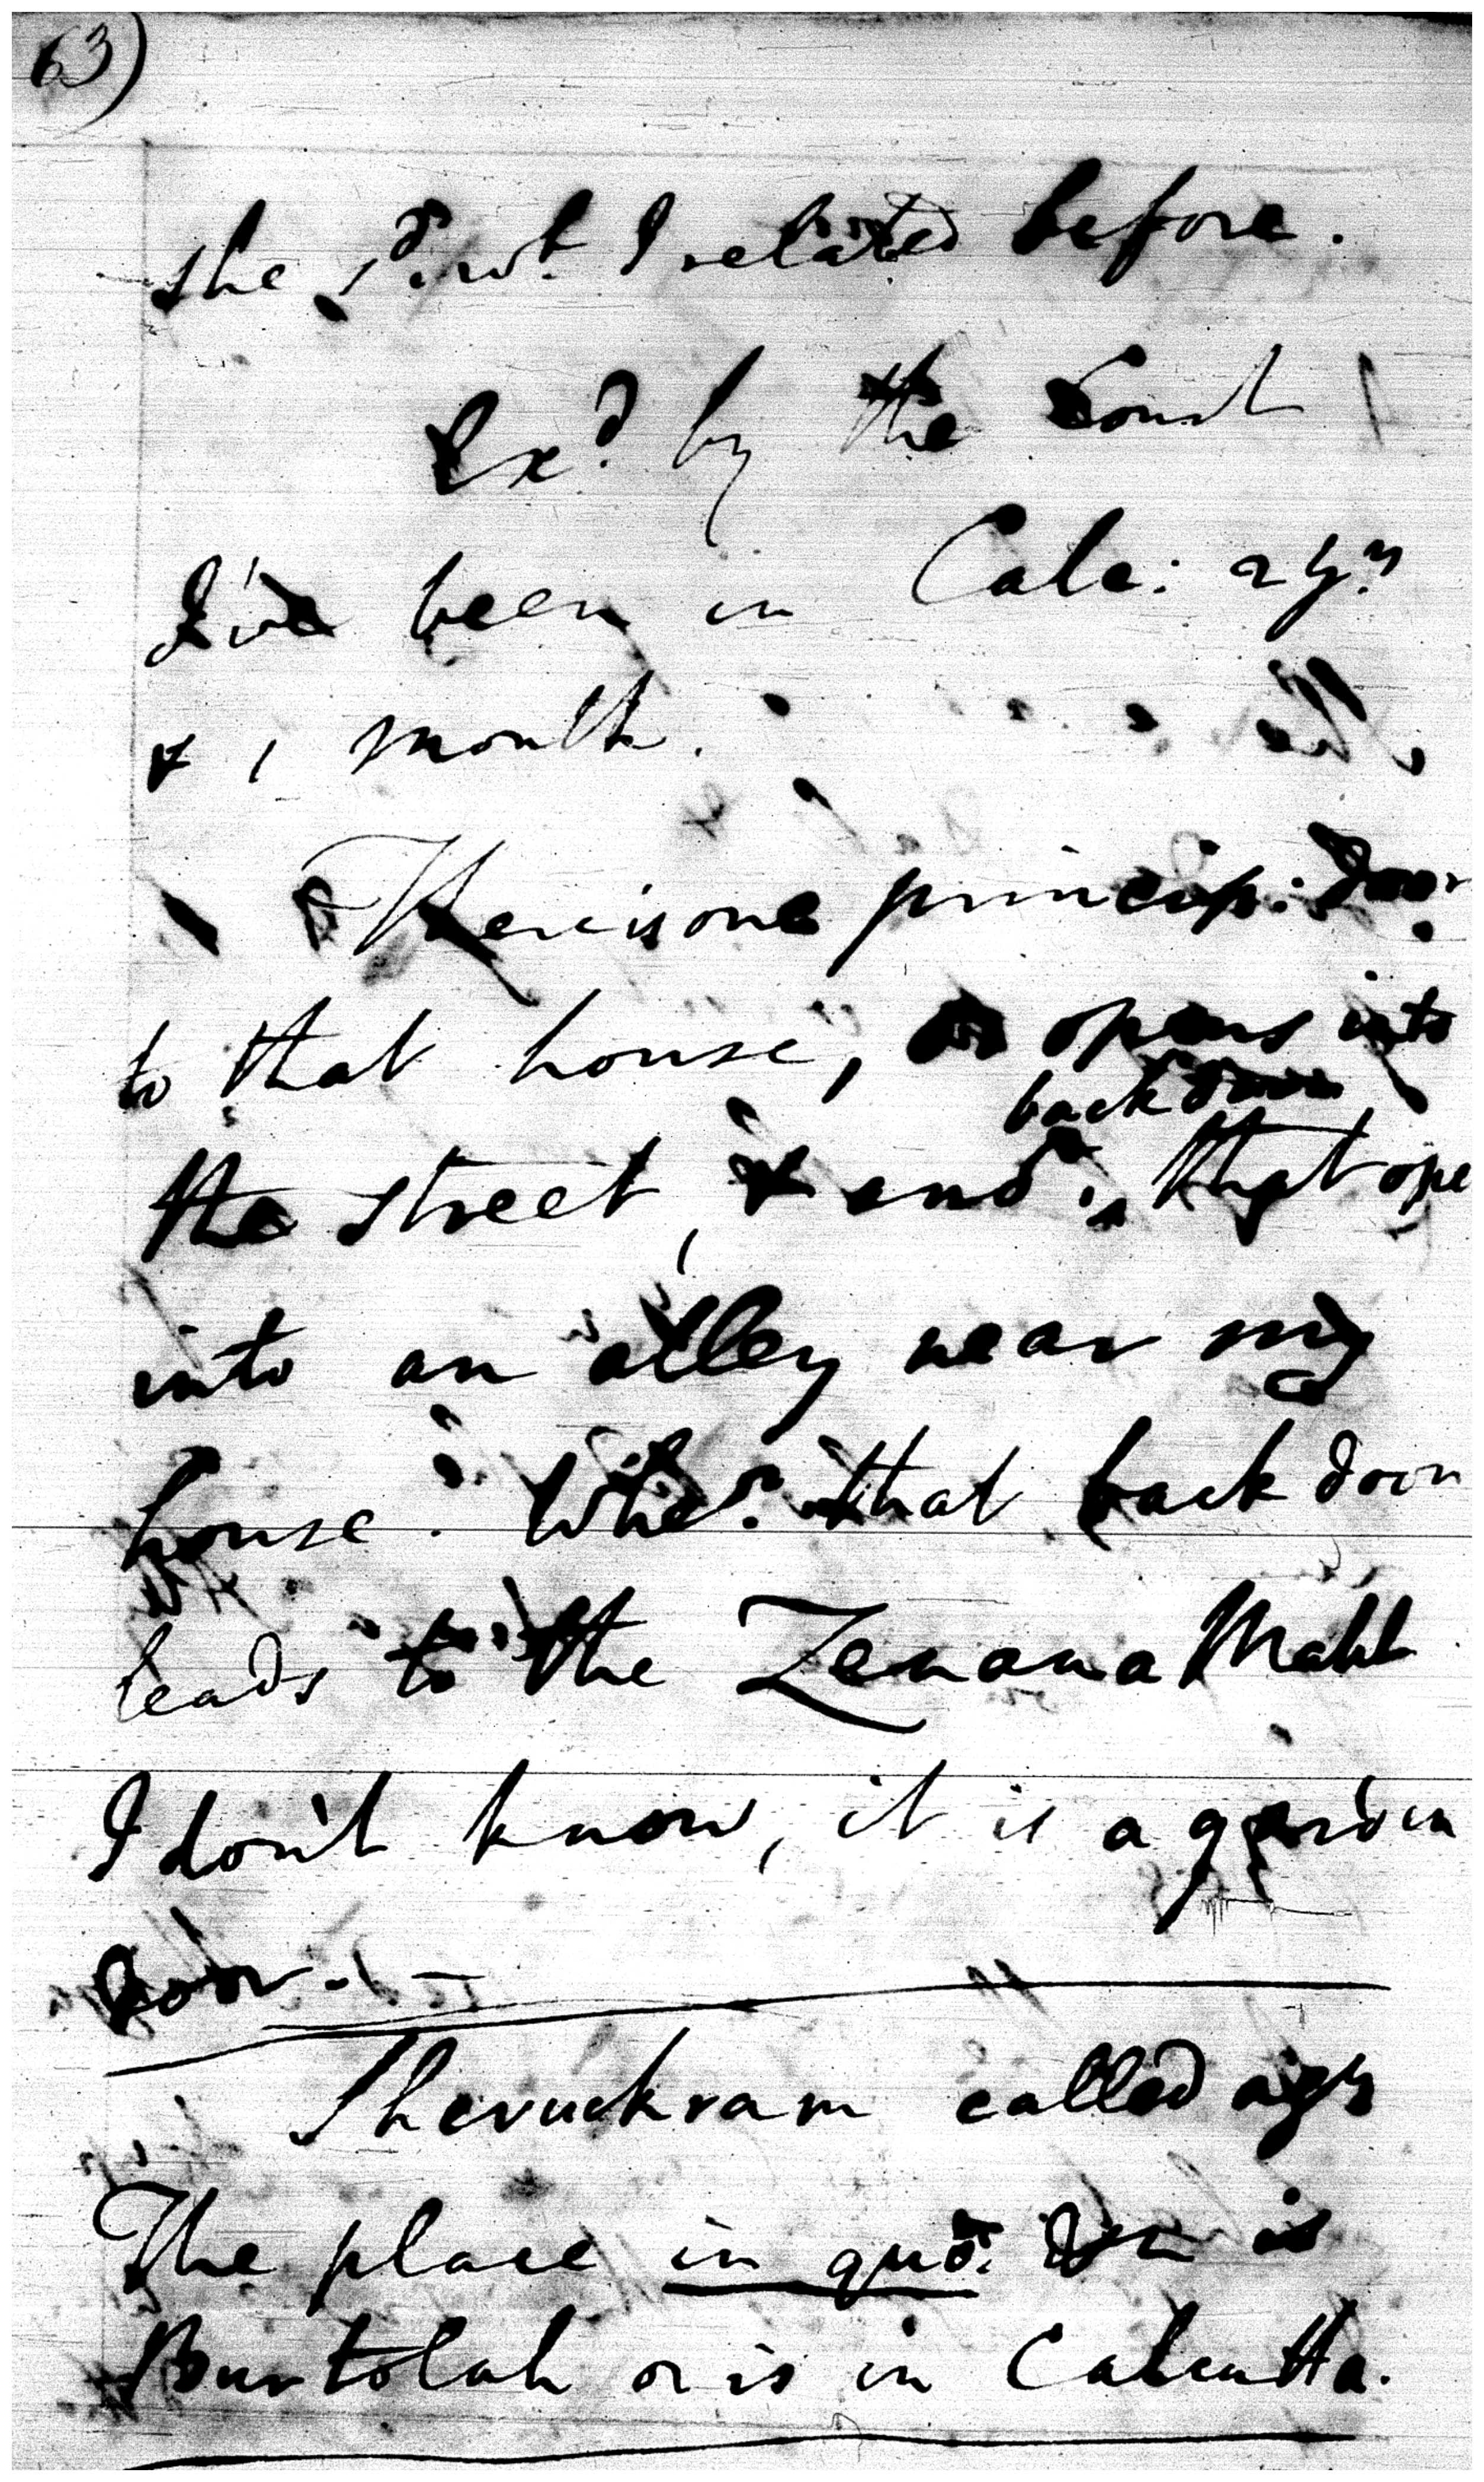 63)
she s.d w.t I related before.
Ex.d by the Court
I've been in Calc: 2 y.rs
& 1 month.
There is one princip: door
to that house, opens into
back door
the street, & and that ope
into an alley near my
house. Whe.r that back door
leads to the Zenana Mahl
I don't know, it is a garden
door.
Shevuckram called ag.n
The place in quo. is
Burtolah or is in Calcutta.